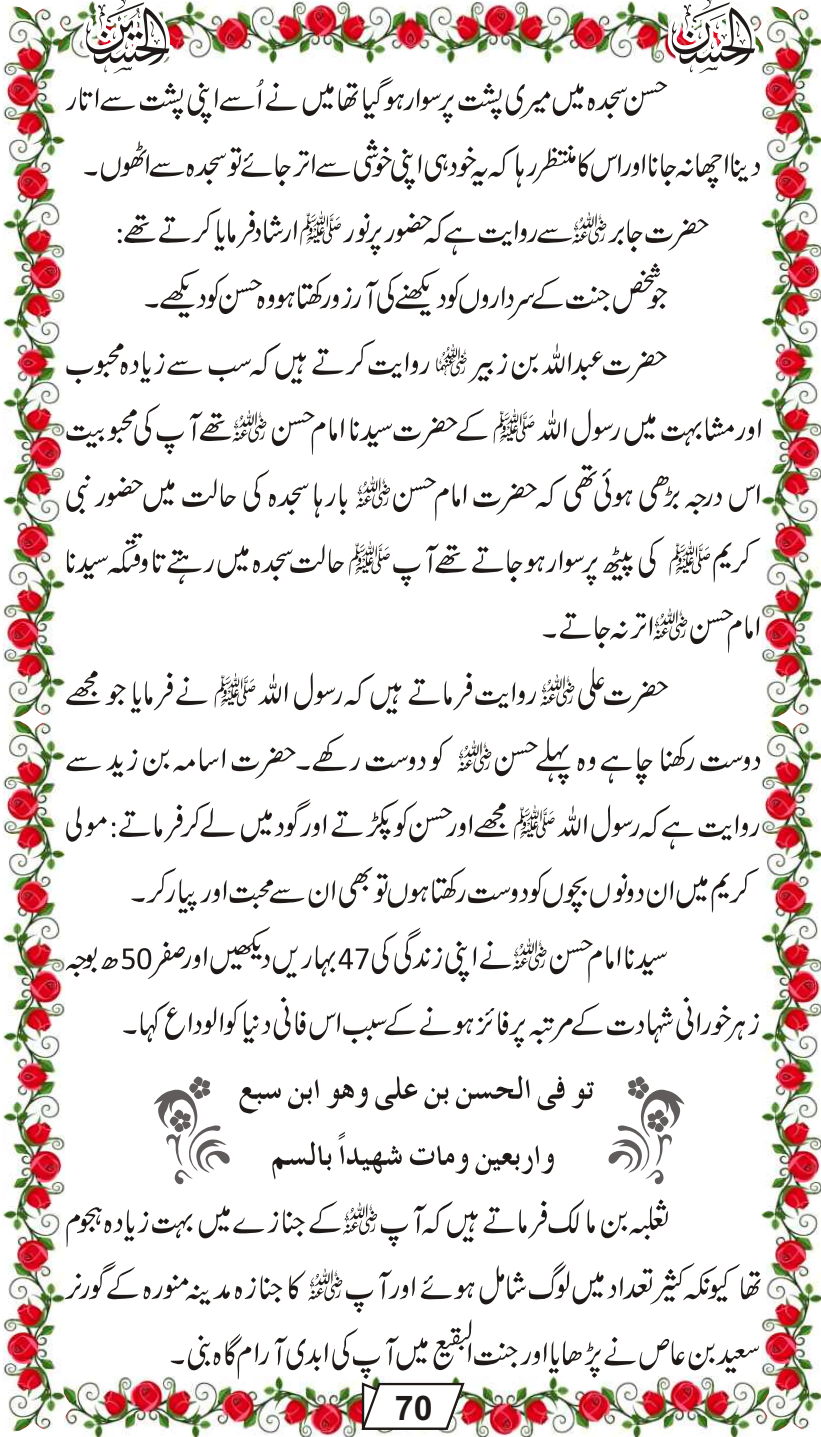 الحسنین
الحسنین
حسن سجدہ میں میری پشت پر سوار ہو گیا تھا میں نے اُسے اپنی پشت سے اتار
دینا اچھا نہ جانا اور اس کا منتظر رہا کہ یہ خود ہی اپنی خوشی سے اتر جائے تو سجدہ سے اٹھوں۔
حضرت جابر رضی اللہ عنہ سے روایت ہے کہ حضور پر نور صلی اللہ علیہ وسلم ارشاد فرمایا کرتے تھے:
جو شخص جنت کے سرداروں کو دیکھنے کی آرزو رکھتا ہو وہ حسن کو دیکھے۔
حضرت عبداللہ بن زبیر رضی اللہ عنہما روایت کرتے ہیں کہ سب سے زیادہ محبوب
اور مشابہت میں رسول اللہ صلی اللہ علیہ وسلم کے حضرت سیدنا امام حسن رضی اللہ عنہ تھے آپ کی محبوبیت
اس درجہ بڑھی ہوئی تھی کہ حضرت امام حسن رضی اللہ عنہ بارہا سجدہ کی حالت میں حضور نبی
کریم صلی اللہ علیہ وسلم کی پیٹھ پر سوار ہو جاتے تھے آپ صلی اللہ علیہ وسلم حالت سجدہ میں رہتے تاوقتیکہ سیدنا
امام حسن رضی اللہ عنہ اتر نہ جاتے۔
حضرت علی رضی اللہ عنہ روایت فرماتے ہیں کہ رسول اللہ صلی اللہ علیہ وسلم نے فرمایا جو مجھے
دوست رکھنا چاہے وہ پہلے حسن رضی اللہ عنہ کو دوست رکھے۔ حضرت اسامہ بن زید سے
روایت ہے کہ رسول اللہ صلی اللہ علیہ وسلم مجھے اور حسن کو پکڑتے اور گود میں لے کر فرماتے: مولی
کریم میں ان دونوں بچوں کو دوست رکھتا ہوں تو بھی ان سے محبت اور پیار کر۔
سیدنا امام حسن رضی اللہ عنہ نے اپنی زندگی کی 47 بہاریں دیکھیں اور صفر 50ھ بوجہ
زہر خورانی شہادت کے مرتبہ پر فائز ہونے کے سبب اس فانی دنیا کو الوداع کہا۔
تو فى الحسن بن على وهو ابن سبع
واربعين ومات شهيداً بالسم
ثعلبہ بن مالک فرماتے ہیں کہ آپ رضی اللہ عنہ کے جنازے میں بہت زیادہ ہجوم
تھا کیونکہ کثیر تعداد میں لوگ شامل ہوئے اور آپ رضی اللہ عنہ کا جنازہ مدینہ منورہ کے گورنر
سعید بن عاص نے پڑھایا اور جنت البقیع میں آپ کی ابدی آرام گاہ بنی۔
70